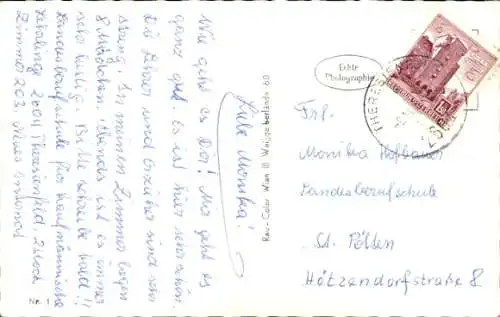 Liebe Monika!
Wie geht es Dir! Mir geht es
ganz gut. Es ist hier sehr schön.
Die Lehrer und Erzieher sind sehr
streng. In meinem Zimmer liegen
8 Mädchen. Abends ist es immer
sehr lustig. Bitte schreibe bald!!
Landesberufschule für kaufmännische
Lehrlinge 2604 Theresienfeld, 2. Stock
Zimmer 203 Neues
Nr. 1
Rau-Color Wien III Weissgerberlände 60
Echte
Photographie
THERESIENFELD
Frl.
Monika Hofbauer
Landesberufschule
St. Pölten
Hötzendorfstraße 8